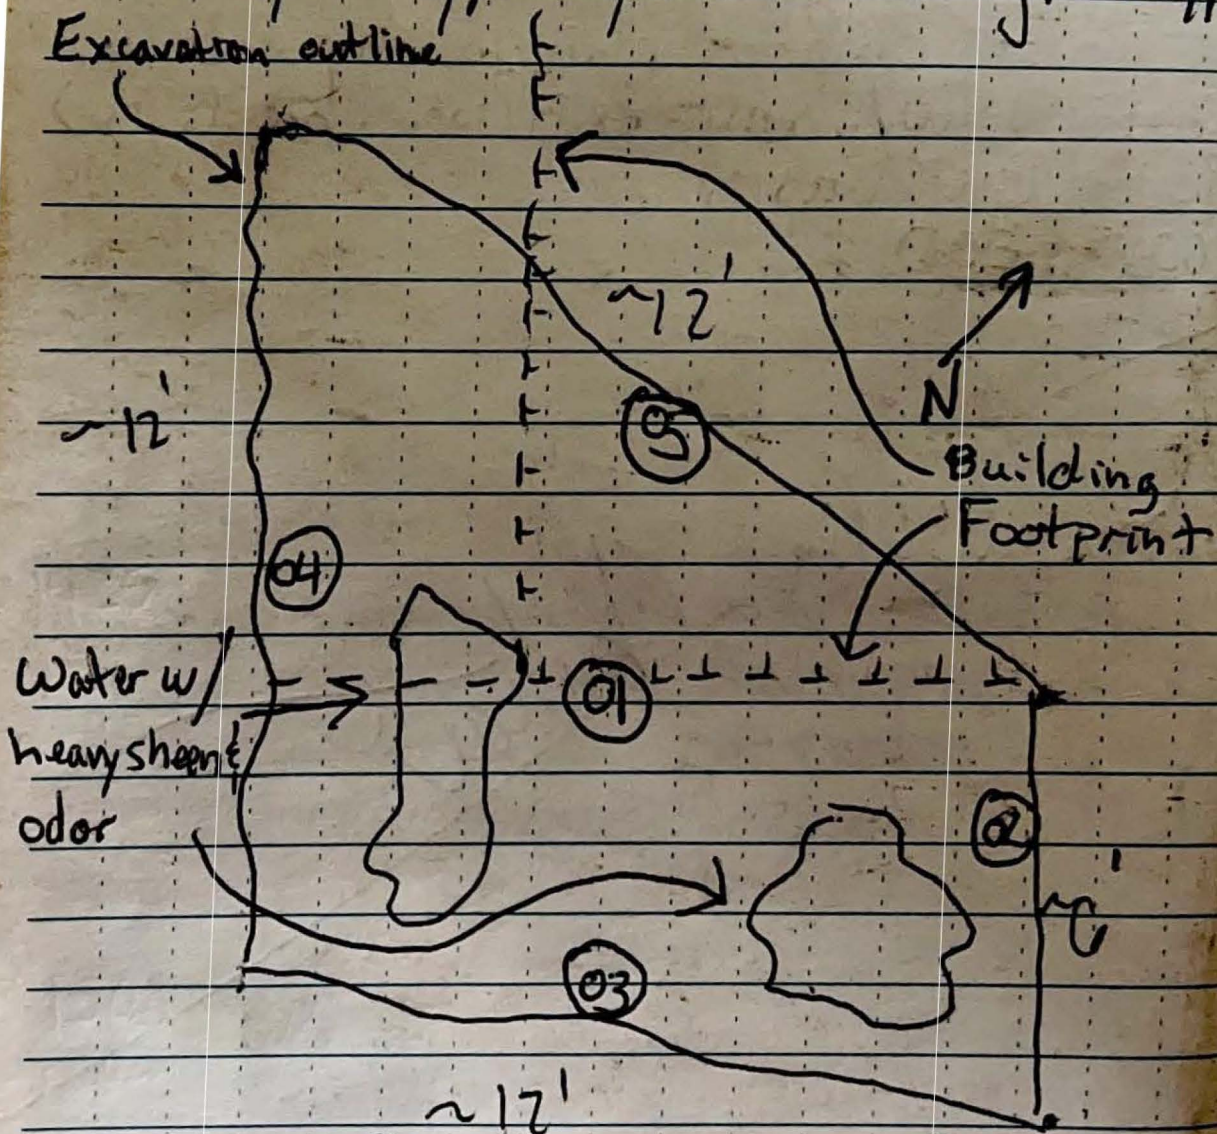 Excavation outline
~12'
N
Building
Footprint
~12'
05
04
Water w/
heavy sheen &
odor
01
02
03
~12'